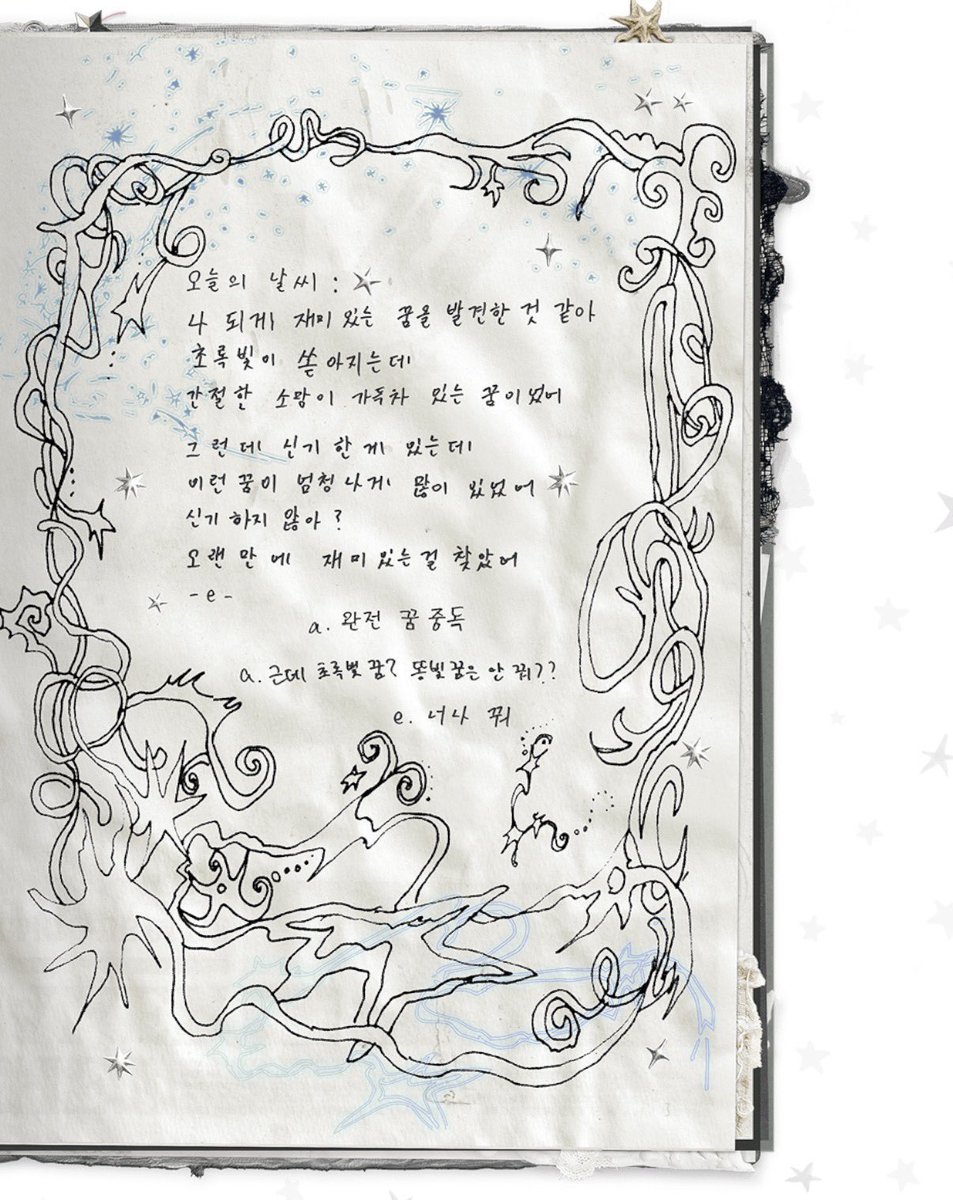 오늘의 날씨 :
나 되게 재미있는 꿈을 발견한 것 같아
초록빛이 쏟아지는데
간절한 소망이 가득차 있는 꿈이었어
그런데 신기한게 있는데
이런 꿈이 엄청나게 많이 있었어
신기하지 않아?
오랜만에 재미있는걸 찾았어
-e-
a. 완전 꿈 중독
a. 근데 초록빛 꿈? 똥빛꿈은 안 꿔??
e. 너나 꿔